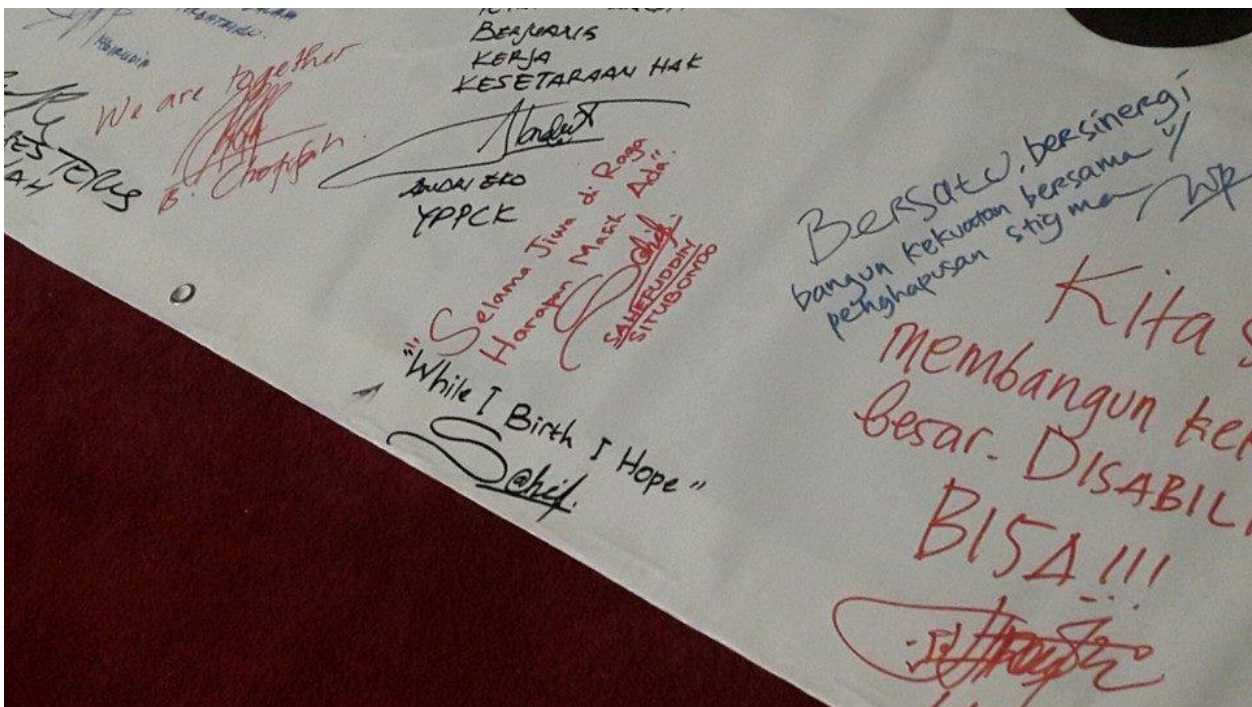 HAIRUDIN
We are together
B. Chotifah
BERJUANG
KERJA
KESETARAAN HAK
ANDRI EKO
YPPCK
Selama Jiwa di Raga
Harapan Masih Ada".
S@hef.
SAHEFUDDIN
SITUBONDO
"While I Birth I Hope"
S@hef.
Bersatu, bersinergi
bangun kekuatan bersama
penghapusan stigma
Kita
membangun ke
besar. DISABILI
BISA!!!